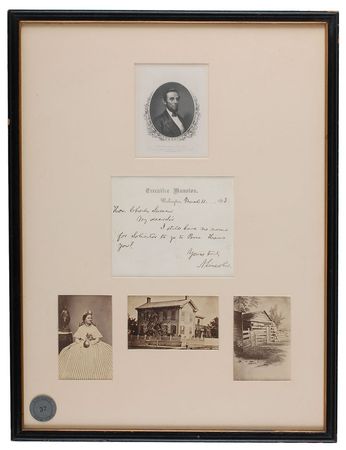 Executive Mansion,
Washington, March 11, 1863
Hon. Charles Sumner
My dear Sir
I still have no name
for Solicitor to go to
you?
Yours truly
A. Lincoln
37